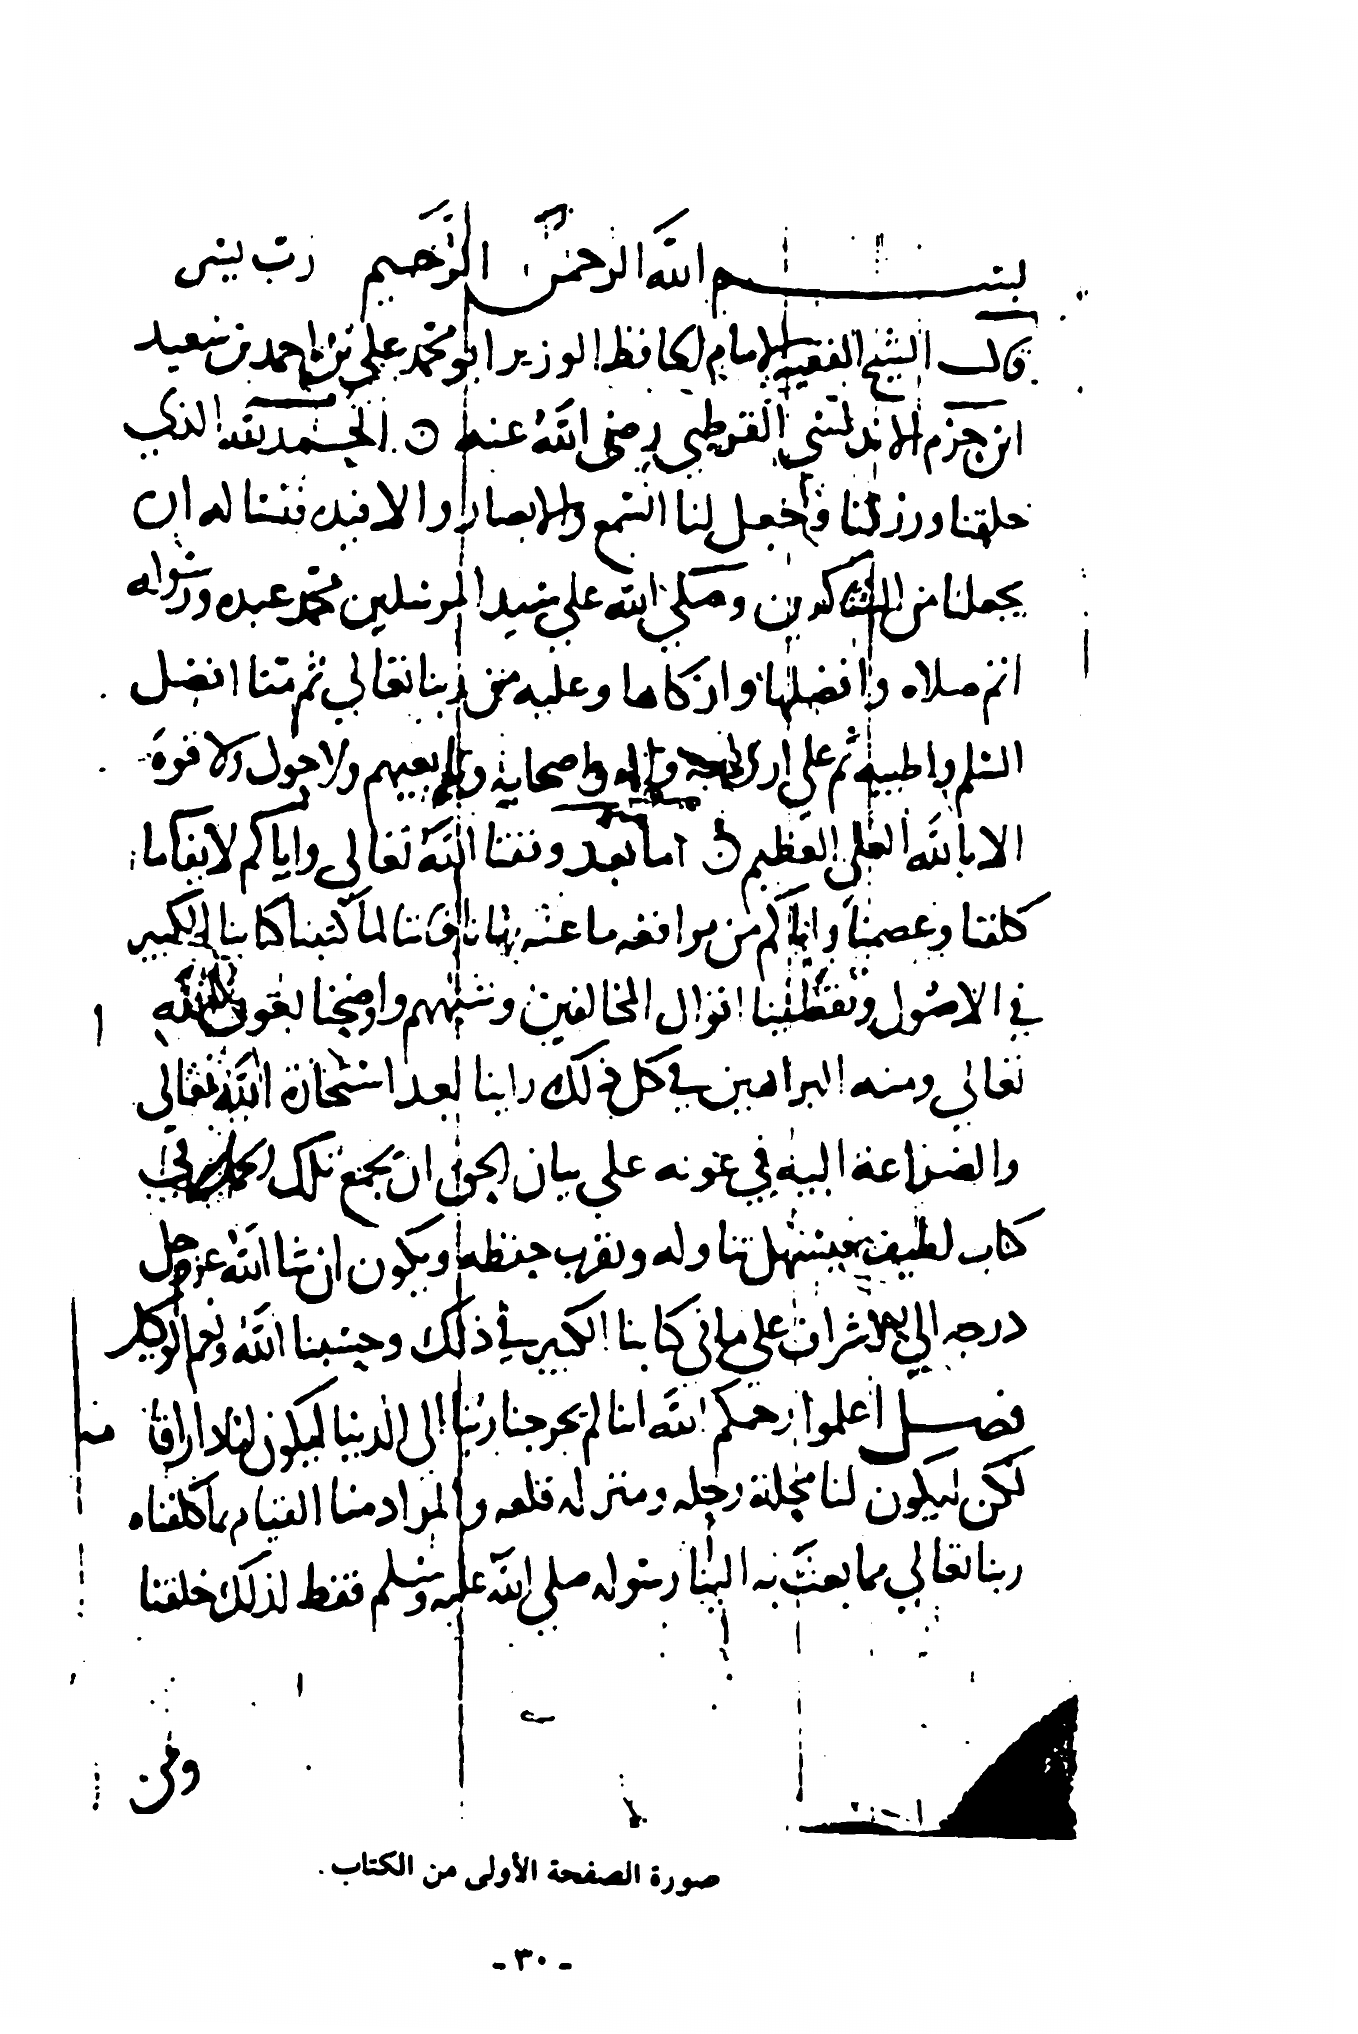 بسم الله الرحمن الرحيم رب يسر
قال الشيخ الفقيه الامام الحافظ الوزير ابو محمد علي بن احمد بن سعيد
ابن حزم الاندلسي القرطبي رضي الله عنه ن الحمد لله الذي
خلقنا ورزقنا وجعل لنا السمع والابصار والافئدة فنسأله ان
يجعلنا من الشاكرين وصلى الله علي سيد المرسلين محمد عبده ورسوله
اتم صلاة وافضلها وازكاها وعليه من ربنا تعالي ثم منا افضل
السلم واطيبه ثم علي ازواجه واله واصحابه وتابعيهم ولا حول ولا قوة
الا بالله العلي العظيم ن اما بعد وفقنا الله تعالي واياكم لايفاء ما
كلفنا وعصمنا واياكم من موافقة ما عنه نهانا فاننا لما كتبنا كتابنا الكبير
في الاصول وتقصينا اقوال المخالفين وشبههم واوضحنا بعون الله
تعالي ومنه البراهين في كل ذلك راينا بعد استخارة الله تعالى
والضراعة اليه في عونه على بيان الحق ان نجمع تلك الجمل في
كتاب لطيف يسهل تناوله ويقرب حفظه ويكون ان شا الله عز وجل
درجة الي الاشراف علي ما في كتابنا الكبير في ذلك وحسبنا الله ونعم الوكيل
فصل اعلموا رحمكم الله اننا لم يخرجنا ربنا الى الدنيا لتكون لنا دار اقامة
لكن ليكون لنا محلة رحلة ومنزلة قلعه والمراد منا القيام بما كلفناه
ربنا تعالي مما بعث به الينا رسوله صلي الله عليه وسلم فقط لذلك خلقنا
ومن
صورة الصفحة الأولى من الكتاب .
- ٣٠ -